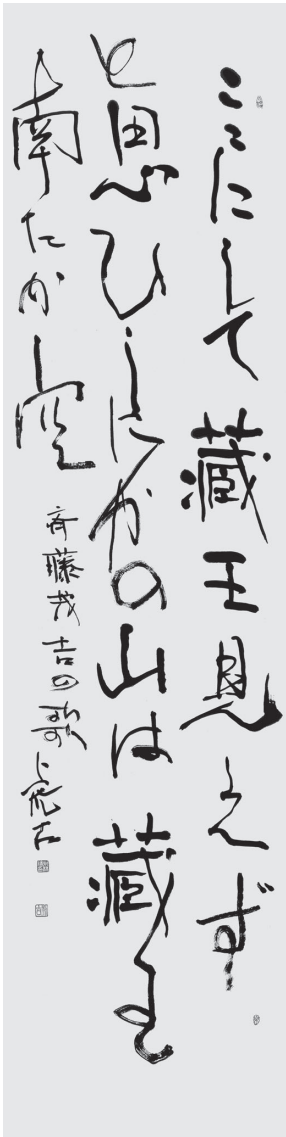 ここにして藏王見えず
と思ひしにかの山は藏王
南たかし空
斉藤茂吉の歌